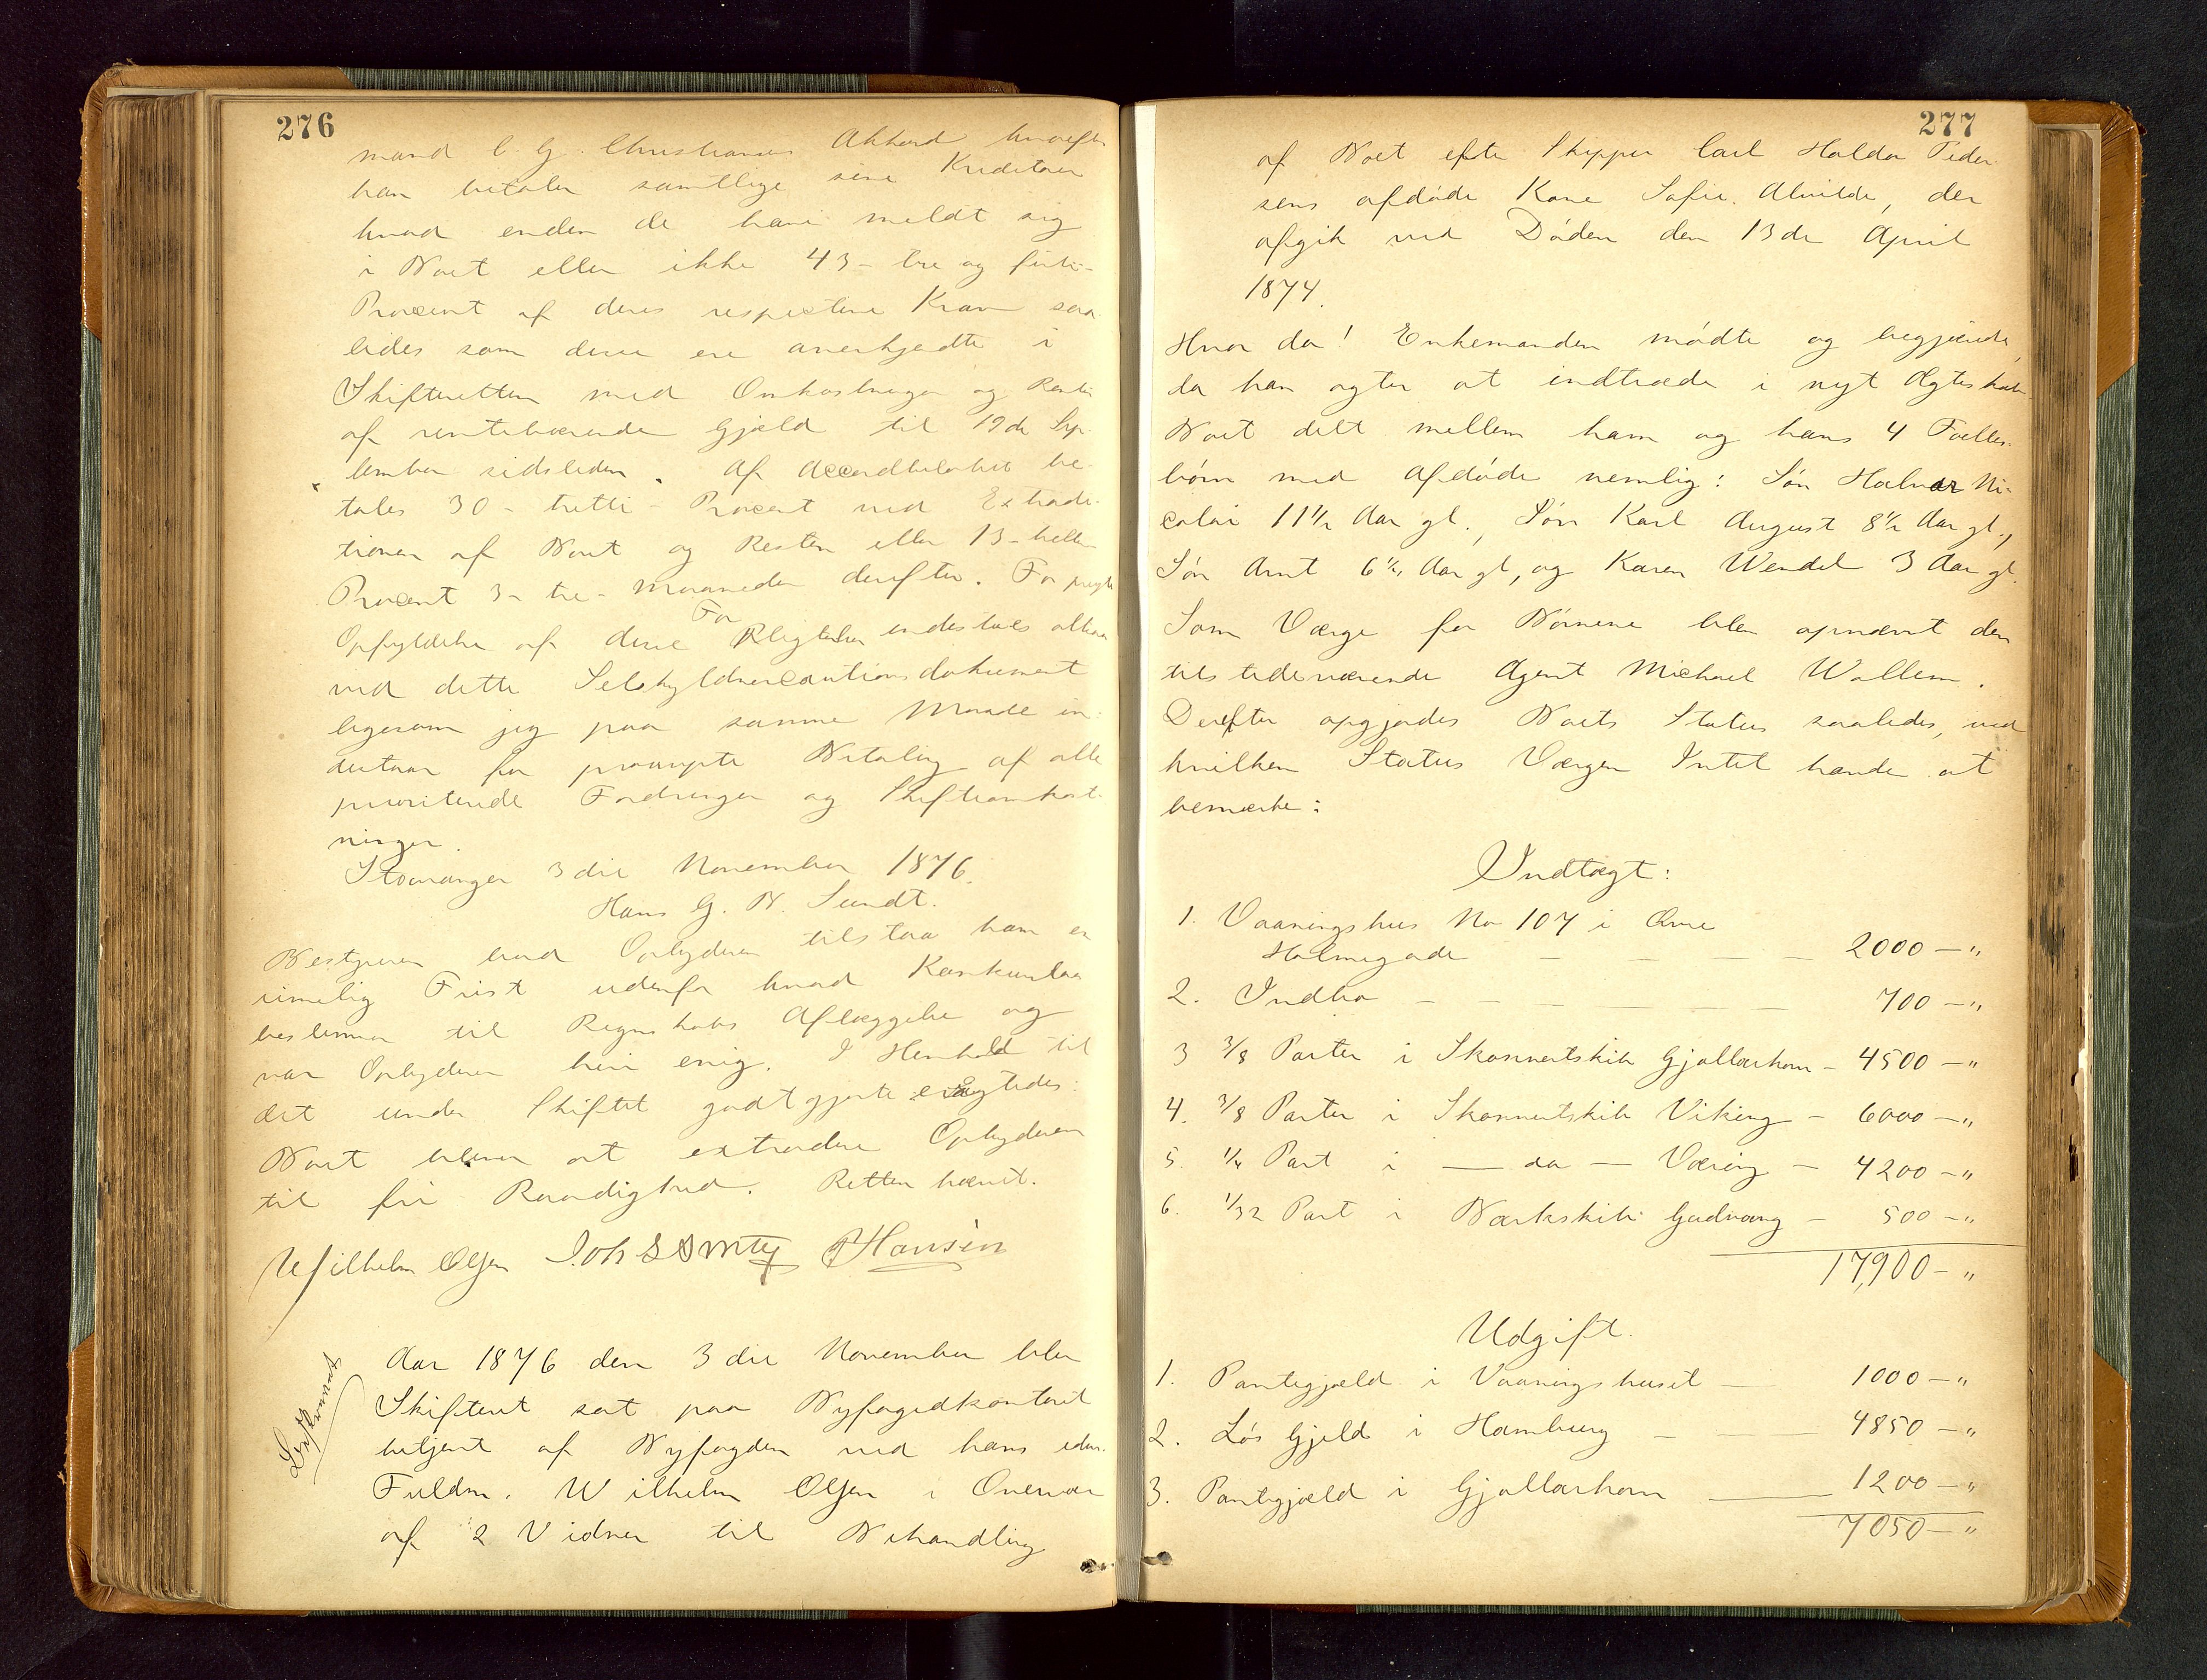 276
mand C. G. Christiansens Akkord hvorefter
han betaler samtlige sine Kreditorer
hvad enden de have meldt sig
i Boet eller ikke 43 - tre og firti -
Procent af deres respective Krav saa
ledes som disse ere anerkjendte i
Skifteretten med Omkostninger og Rente
af rentebærende Gjæld til 19de Sep-
tember sidsleden. Af Accordbeløbet be-
tales 30 - tretti - Procent ved Extradi-
tionen af Boet og Resten eller 13 - tretten
Procent 3 - tre - Maaneder derefter. For
Opfyldelse af disse Forpligtelser indestaaes altsaa
ved dette Selvskyldnercautionsdokument
ligesom jeg paa samme Maade in-
destaar for prompte Betaling af alle
prioriterede Fordringer og Skifteomkost-
ninger.
Stavanger 3die November 1876.
Hans G. B. Sundt.
Bestyreren bad Opbyderen tilstaa ham en
rimelig Frist udenfor hvad Konkursloven
bestemmer til Regnskabs Aflæggelse og
var Opbyderen heri enig. I Henhold til
det under Skiftet godtgjorte eragtedes:
Boet bliver at extradere Opbyderen
til fri Raadighed. Retten hævet.
Wilhelm Olsen Joh S Smty PHansen
Aar 1876 den 3die November blev
Skifteret sat paa Byfogedkontoret
betjent af Byfogden ved hans edsv.
Fuldm. Wilhelm Olsen i Overvær
af 2 Vidner til Behandling
277
af Boet efter Skipper Carl Haldor Peder-
sens afdøde Kone Sofie Alvilde, der
afgik ved Døden den 13de April
1874.
Hvor da! Enkemanden mødte og begjærede,
da han agter at indtræde i nyt Ægteskab
Boet delt mellem ham og hans 4 Fælles-
børn med Afdøde nemlig: Søn Halvar Ni-
colai 11½ Aar gl., Søn Karl August 8½ Aar gl.,
Søn Arnt 6½ Aar gl, og Karen Wendel 3 Aar gl.
Som Værge for Børnene blev opnævnt den
tilstedeværende Agent Michael Wallem.
Derefter opgjordes Boets Status saaledes, ved
hvilken Status Værgen Intet havde at
bemærke:
Indtægt:
1. Vaaningshus No 107 i Øvre
Holmegade — — — — 2000 — "
2. Indbo — — — — — 700 — "
3 3/8 Parter i Skonnertskib Gjallarhorn — 4500 — "
4. 3/8 Parter i Skonnertskib Viking — 6000 — "
5. ¼ Part i — do — Væring — 4200 — "
6. 1/32 Part i Barkskib Gudvang — 500 — "
17,900 — "
Udgift.
1. Pantegjæld i Vaaningshuset — 1000 — "
2. Løs Gjæld i Hamburg — 4850 — "
3. Pantegjæld i Gjallarhorn — 1200 — "
7050 — "